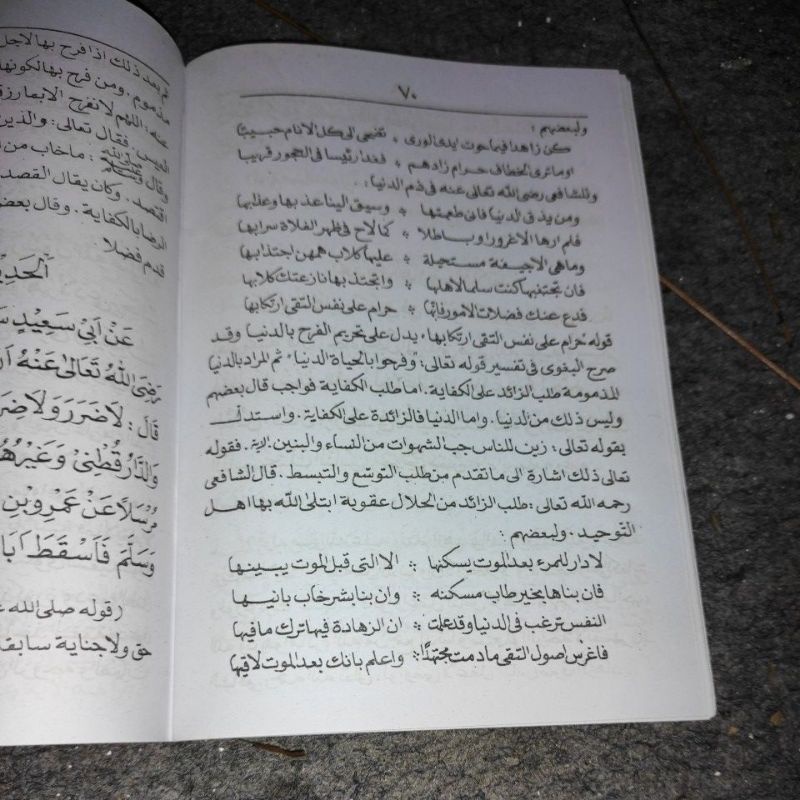 ٧٠
ولبعضهم :
كن زاهدا فيما حوت ايدى الورى * تضحى الى كل الانام حبيبا
اوما ترى الخطاف حرم زادهم * فغدا رئيسا فى الحجور قريبا
وللشافعى رضى الله تعالى عنه فى ذم الدنيا :
ومن يذق الدنيا فانى طعمتها * وسيق الينا عذبها وعذابها
فلم ارها الا غرورا وباطلا * كما لاح فى ظهر الفلاة سرابها
وماهى الا جيفة مستحيلة * عليها كلاب همهن اجتذابها
فان تجتنبها كنت سلما لاهلها * وان تجتذبها نازعتك كلابها
فدع عنك فضلات الامور فانها * حرام على نفس التقى ارتكابها
قوله حرام على نفس التقى ارتكابها، يدل على تحريم الفرح بالدنيا وقد
صرح البغوى فى تفسير قوله تعالى : "وفرحوا بالحياة الدنيا" ثم المراد بالدنيا
المذمومة طلب الزائد على الكفاية . اما طلب الكفاية فواجب قال بعضهم
وليس ذلك من الدنيا . واما الدنيا فالزائدة على الكفاية . واستدل
بقوله تعالى : زين للناس حب الشهوات من النساء والبنين . الاية . فقوله
تعالى ذلك اشارة الى ما تقدم من طلب التوسع والتبسط . قال الشافعى
رحمه الله تعالى : طلب الزائد من الحلال عقوبة ابتلى الله بها اهل
التوحيد . ولبعضهم :
لا دار للمرء بعد الموت يسكنها * الا التى قبل الموت يبينها
فان بناها بخير طاب مسكنه * وان بنا بشر خاب بانيها
النفس ترغب فى الدنيا وقد علمت * ان الزهادة فيها ترك ما فيها
فاغرس اصول التقى مادمت مجتهدا * واعلم بانك بعد الموت لاقيها
ثم بعد ذلك اذا فرح بها لاجل
مذموم . ومن فرح بها لكونها
عنه : اللهم لا نفرح الا بما رزق
فقال تعالى : والذين
وقال صلى الله عليه وسلم : ما خاب من
اقتصد . وكان يقال القصد
الرضا بالكفاية . وقال بعض
قدم فضلا
الحديـ
عَنْ اَبِىْ سَعِيْدٍ سَـ
رَضِىَ اللهُ تَعَالٰى عَنْهُ اَنَّ
قَالَ : لَا ضَرَرَ وَلَا ضِرَ
وَالدَّارَقُطْنِىْ وَغَيْرُهُ
مُرْسَلًا عَنْ عَمْرِوبْنِ
وَسَلَّمَ فَاَسْقَطَ اَبَا
(قوله صلى الله
حق ولا جناية سابقـ